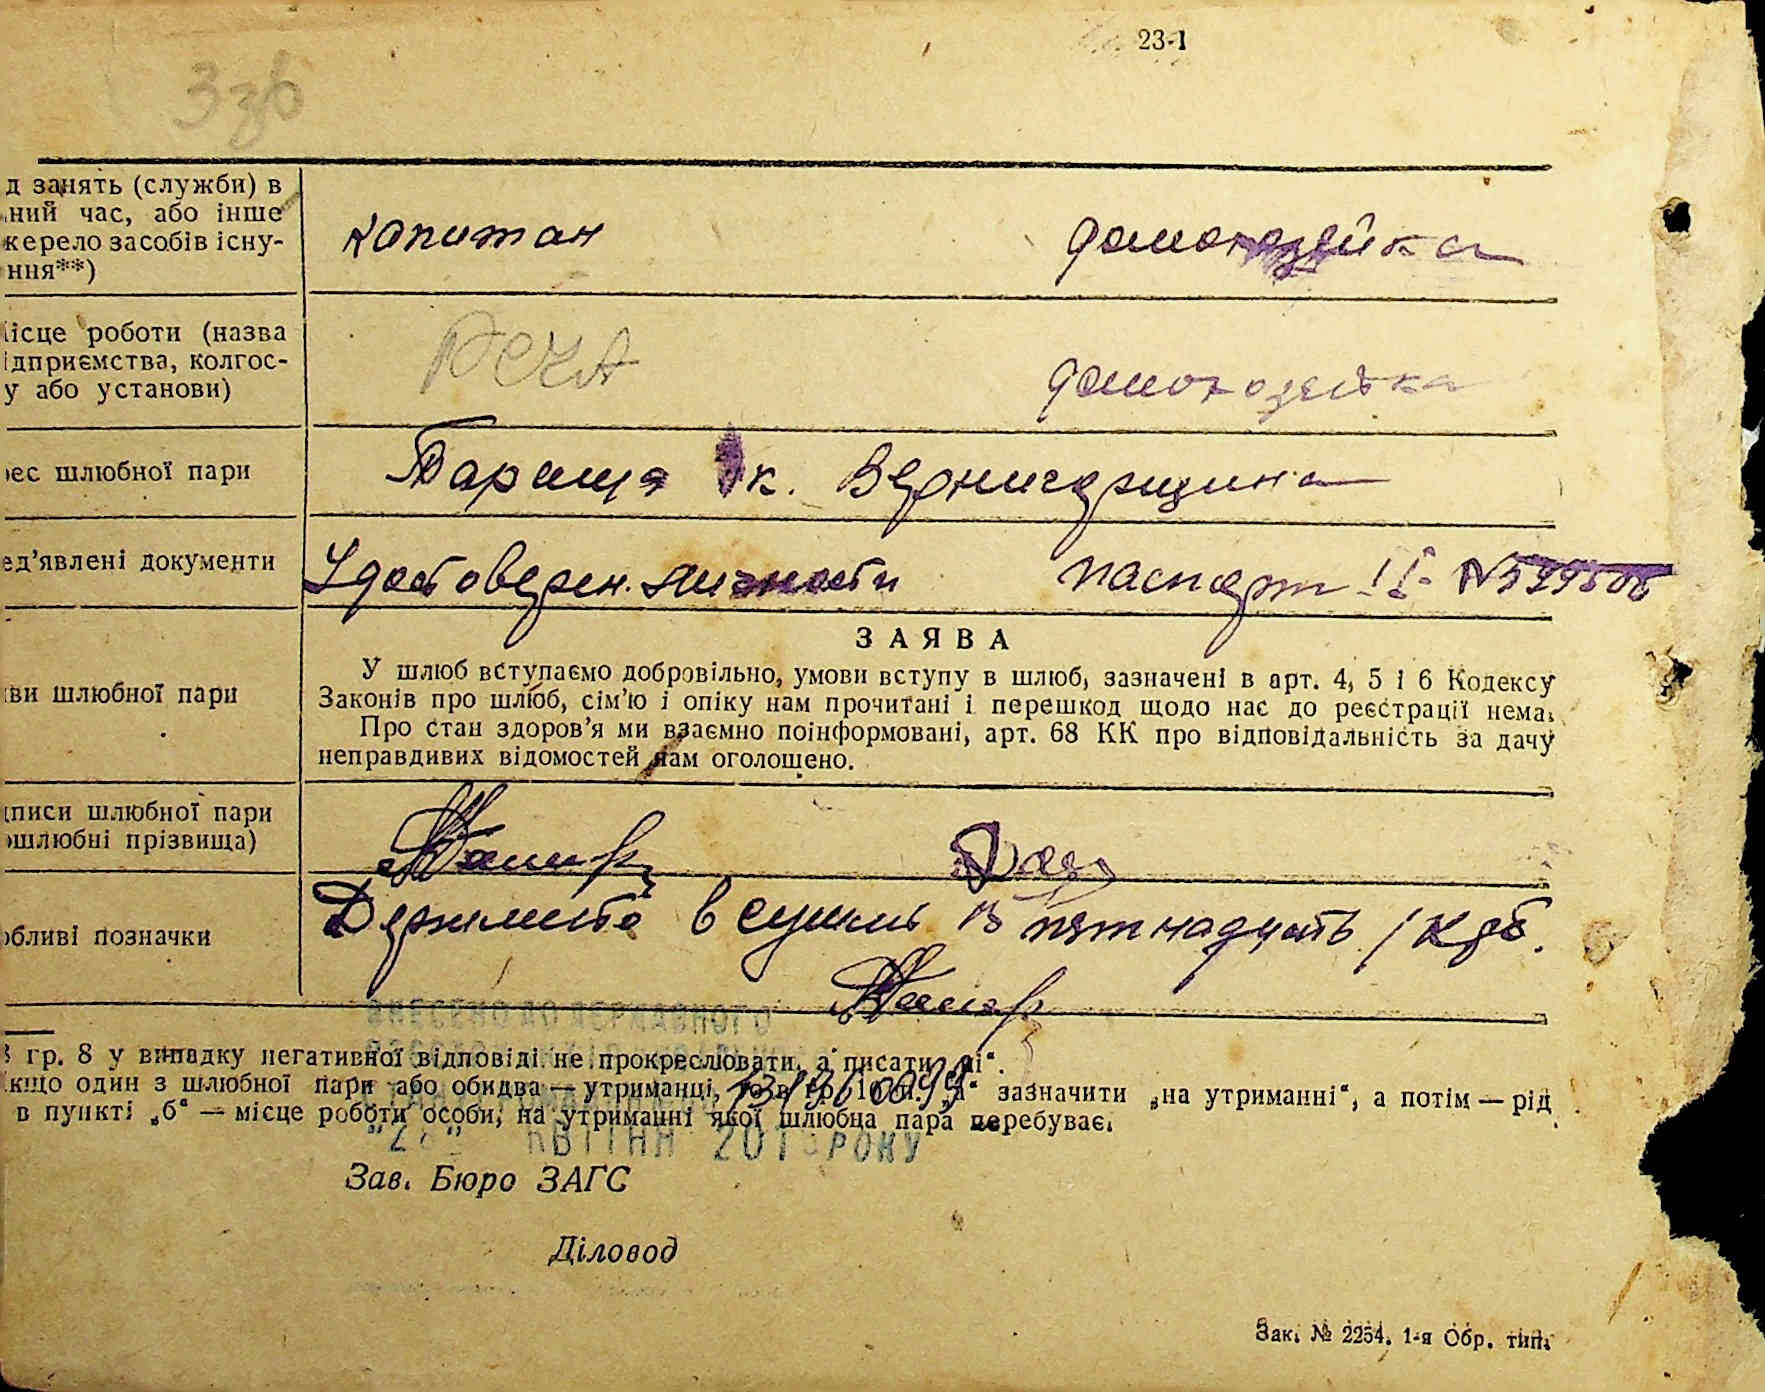 23-1
д занять (служби) в
ний час, або інше
жерело засобів існу-
ння**)
капитан домохозейка
ісце роботи (назва
ідприємства, колгос-
у або установи)
РСЧА домохозейка
ес шлюбної пари
Тараща к. Вернигорщина
ед'явлені документи
Удостоверен. личности паспорт
ЗАЯВА
ви шлюбної пари
У шлюб вступаємо добровільно, умови вступу в шлюб, зазначені в арт. 4, 5 і 6 Кодексу
Законів про шлюб, сім'ю і опіку нам прочитані і перешкод щодо нас до реєстрації нема.
Про стан здоров'я ми взаємно поінформовані, арт. 68 КК про відповідальність за дачу
неправдивих відомостей нам оголошено.
писи шлюбної пари
ошлюбні прізвища)
обливі позначки
в сумме 15 пятнадцать
ВНЕСЕНО ДО ДЕРЖАВНОГО
гр. 8 у випадку негативної відповіді не прокреслювати, а писати „ні“.
кщо один з шлюбної пари або обидва — утриманці, то в гр. 10 п. „а“ зазначити „на утриманні“, а потім — рід
в пункті „б“ — місце роботи особи, на утриманні якої шлюбна пара перебуває.
КВІТНЯ РОКУ
Зав. Бюро ЗАГС
Діловод
Зак. № 2254. 1-я Обр. тип.